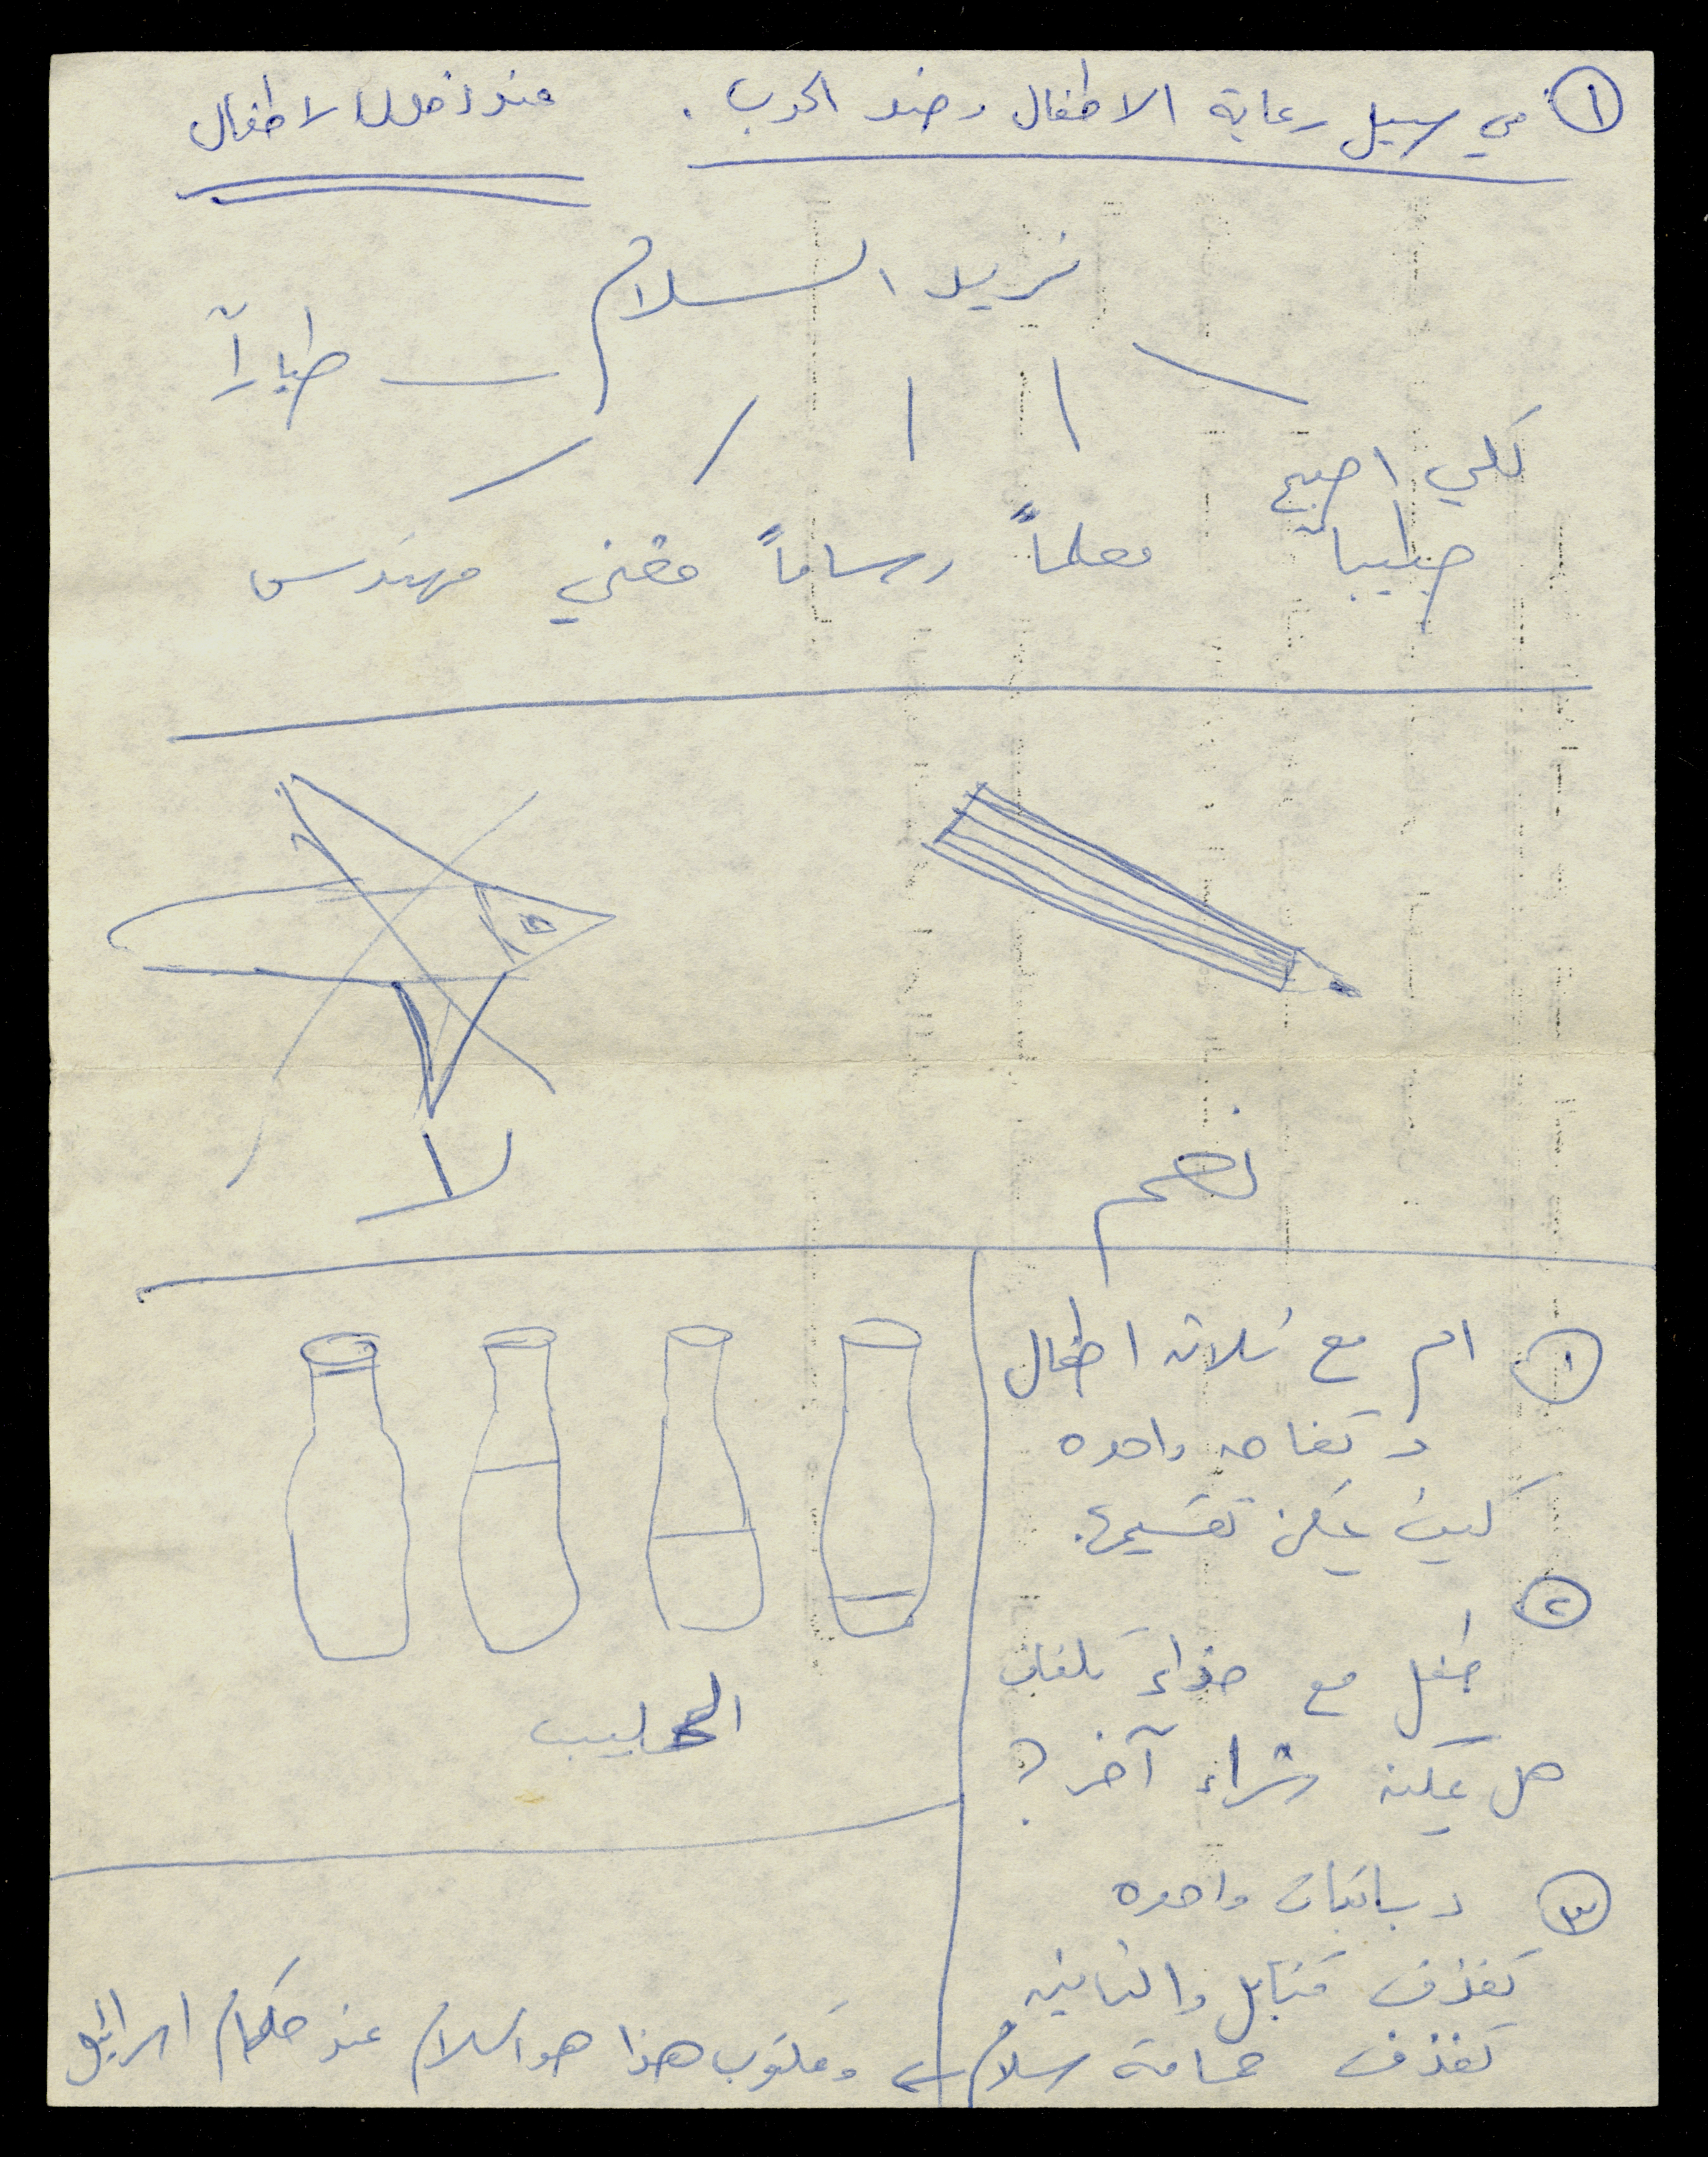 ① في سبيل رعاية الاطفال وضد الحرب. صندوق الاطفال
نريد السلام
طياراً
لكي اصبح
طبيباً معلماً رساماً مغني مهندس
نعم
لا
① ام مع ثلاثة اطفال
و تفاحه واحده
كيف يمكن تقسيمها.
② طفل مع حذاء تلفان
هل يمكنه شراء آخر؟
③ دبابتان واحده
تقذف قنابل والثانيه
تقذف حمامة سلام ← ومكتوب هذا هو السلام عند حكام اسرائيل
الحليب